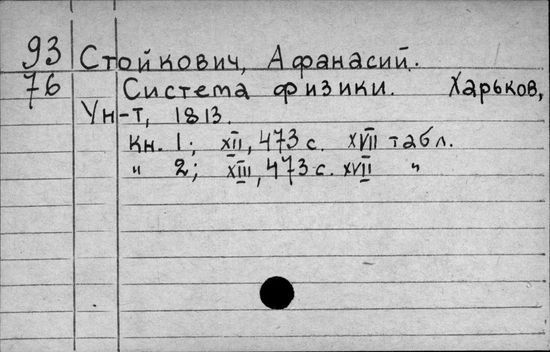 93 Стойкович, Афанасий.
76 Система физики. Харьков,
Ун-т, 1813.
Кн. 1; XII, 473 с. XVII табл.
" 2; XIII, 473 с. XVII "